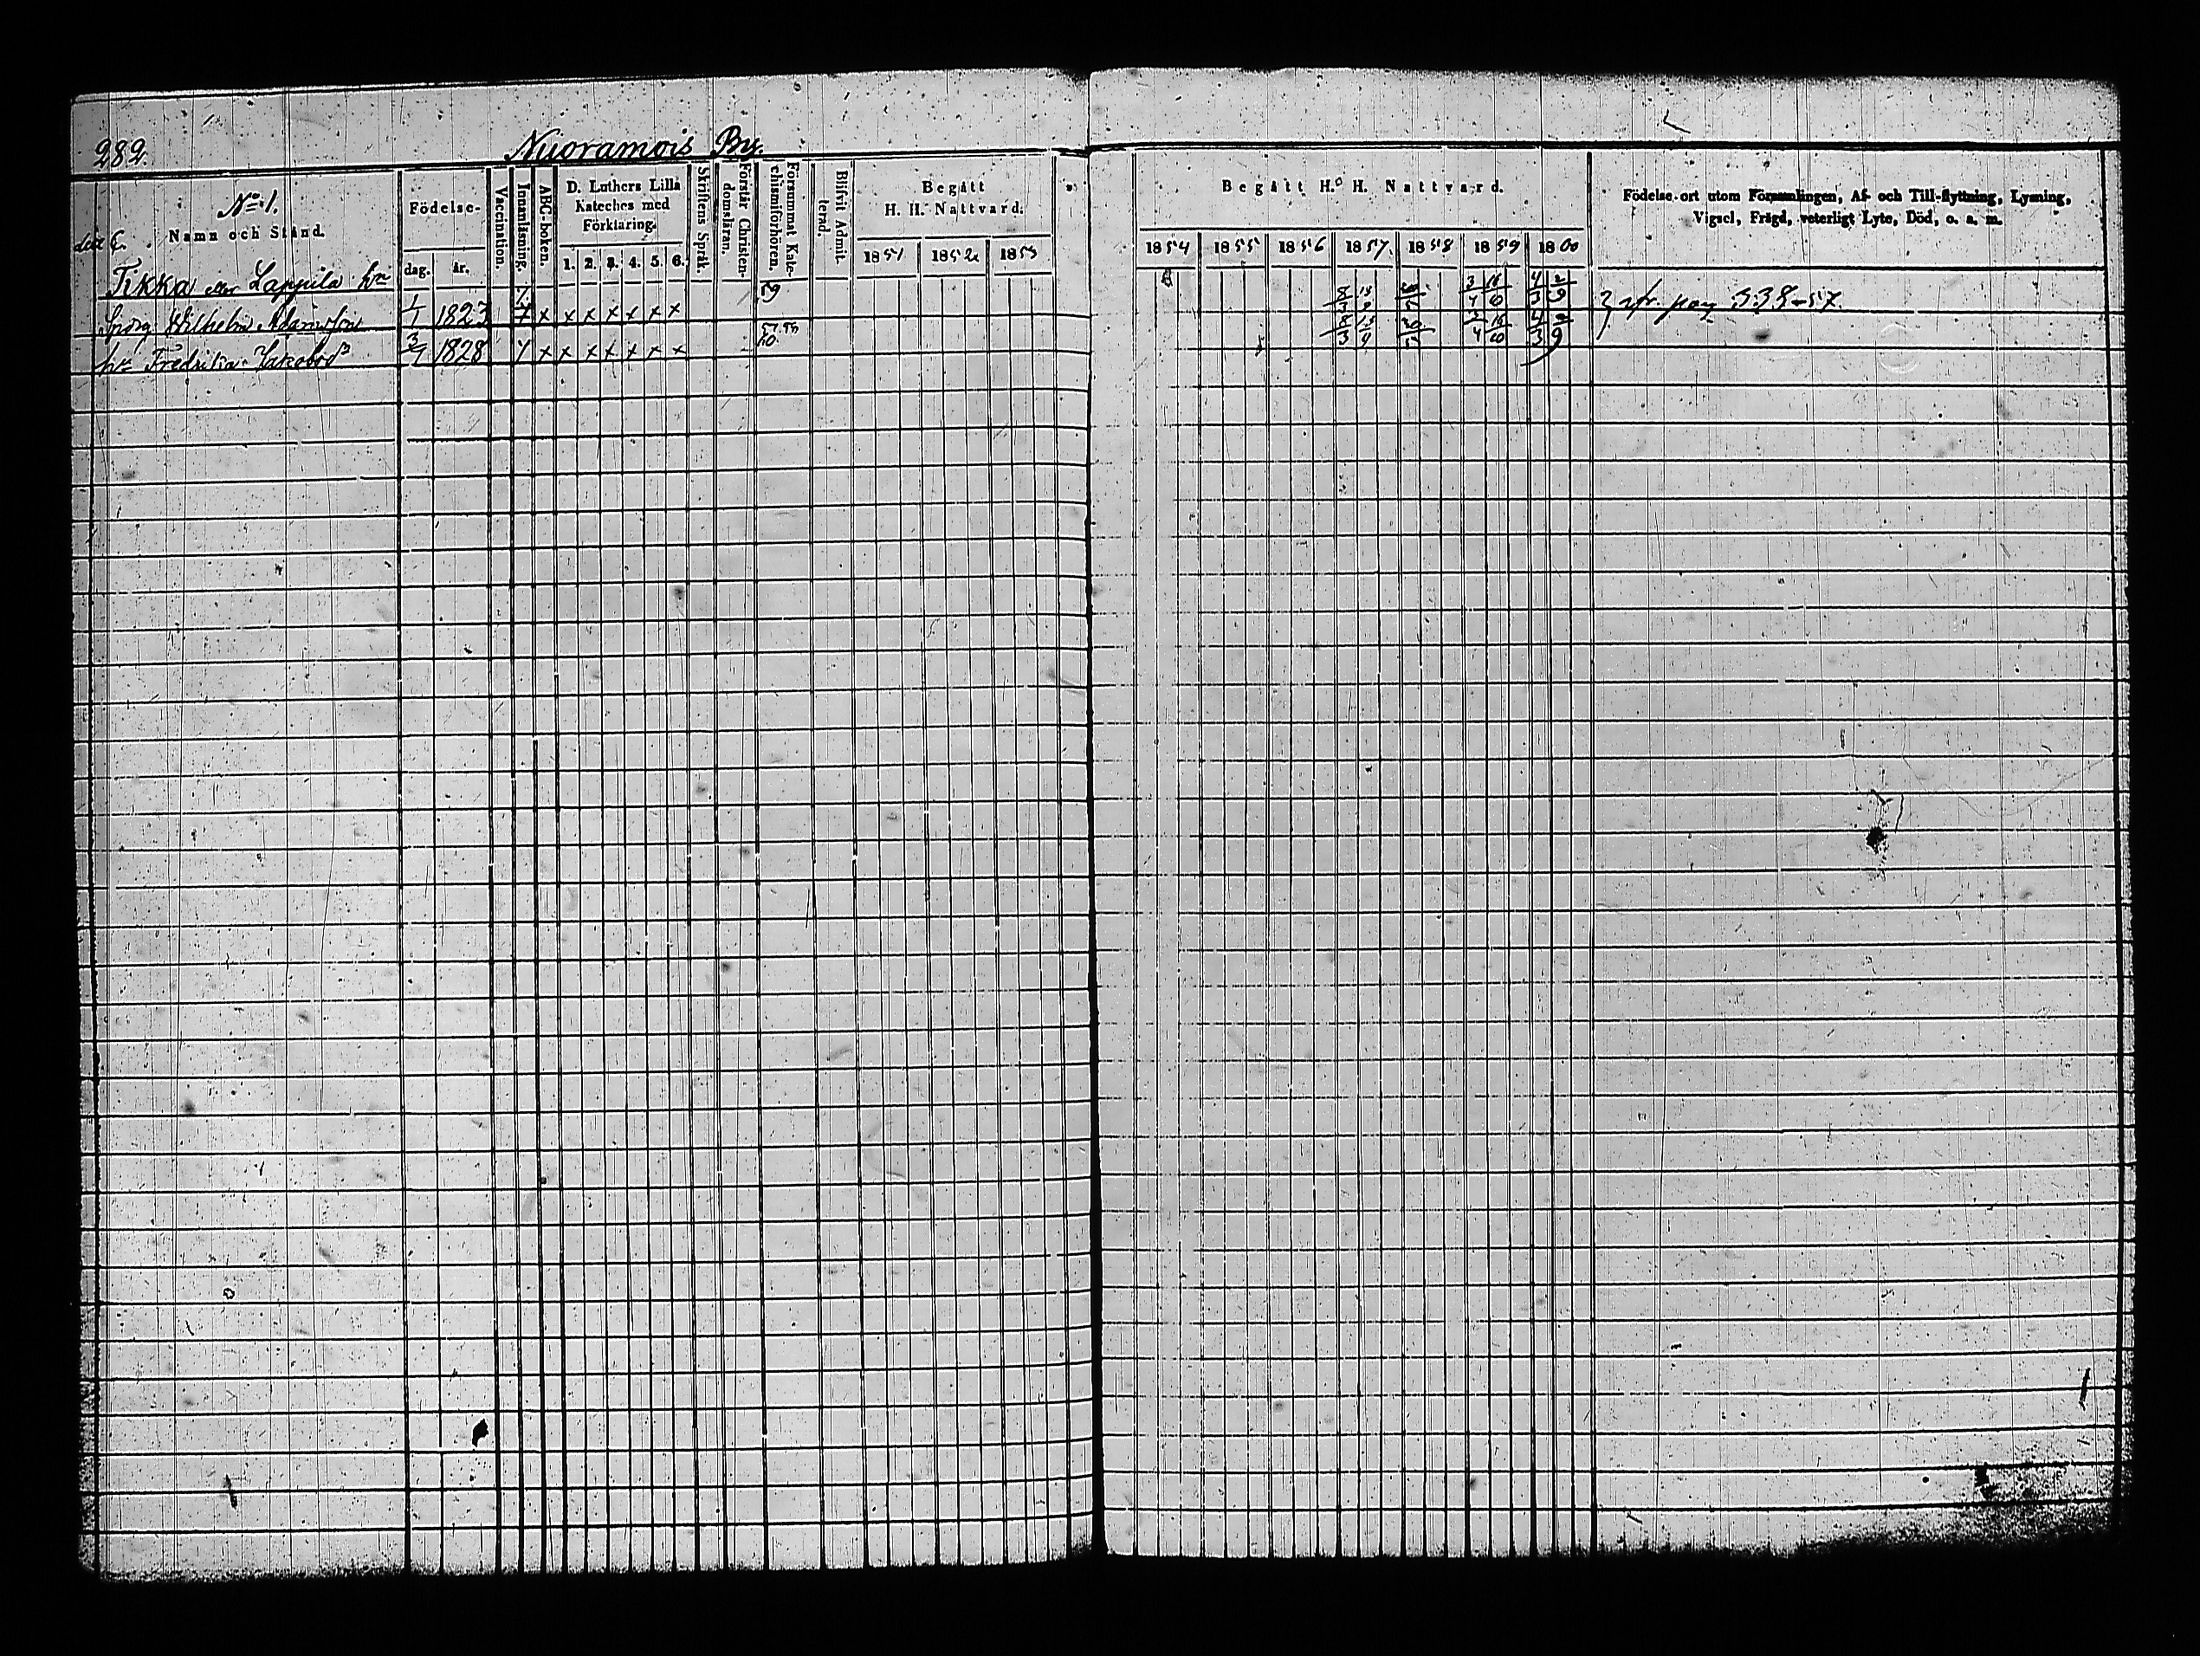 282.
Nuoramois By.
N:o 1.
Namn och Stånd.
Födelse-
dag.
år.
Vaccination.
Innanläsning.
ABC-boken.
D. Luthers Lilla
Kateches med
Förklaring.
1. 2. 3. 4. 5. 6.
Skriftens Språk.
Förstår Christen-
domsläran.
Försummat Kate-
chismiförhören.
Blifvit Admit-
terad.
Begått
H. H. Nattvard.
1851 1852 1853
Begått H. H. Nattvard.
1854 1855 1856 1857. 1858 1859 1860
Födelse-ort utom Församlingen, Af- och Till-flyttning, Lysning,
Vigsel, Frägd, veterligt Lyte, Död, o. a. m.
Tikka eller Lappila
Wilhelm Adamsson 1/1 1823 x x x x x x x
Fredrika Jakobsd 1828 x x x x x x x
fr. pag 338-57.